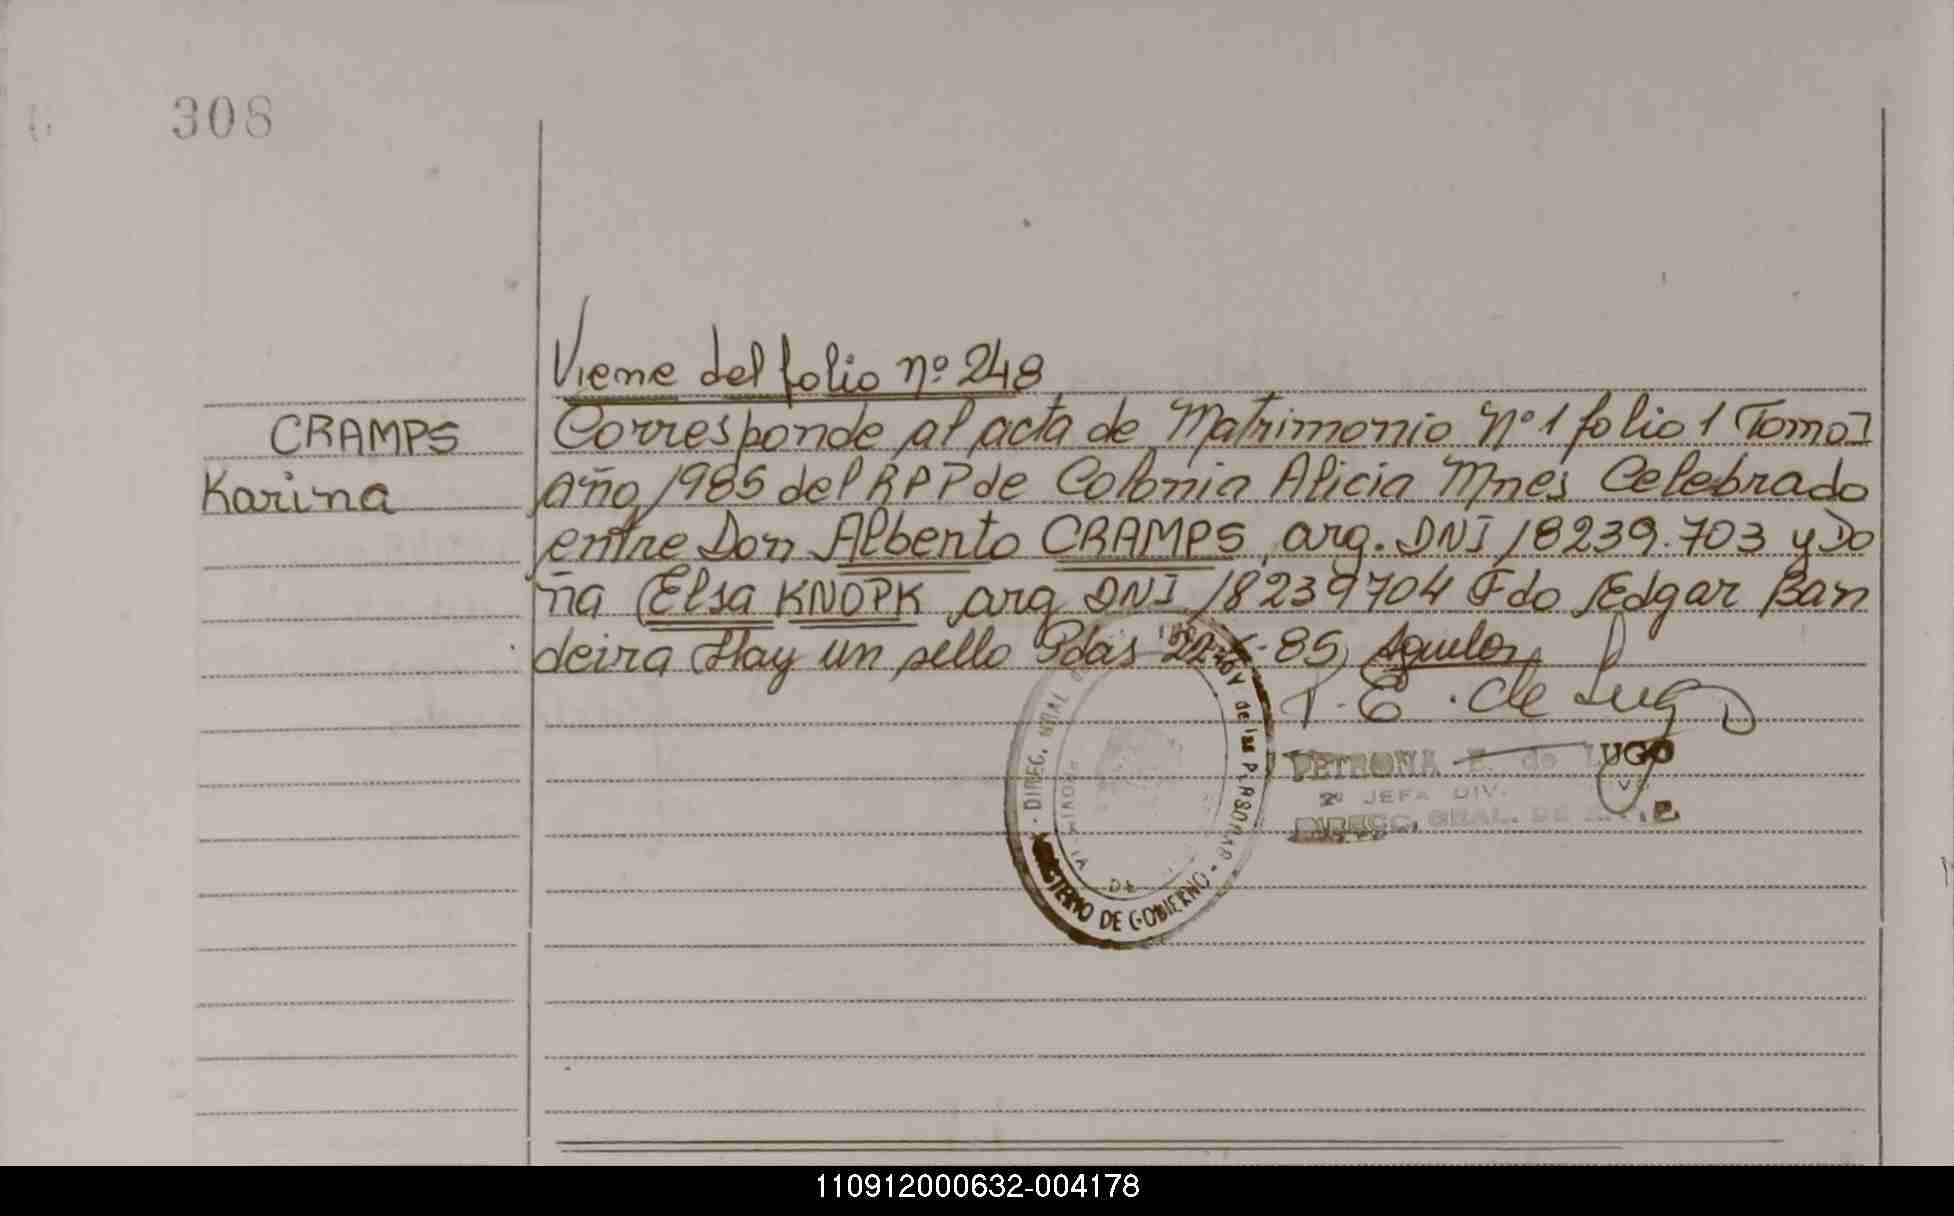 308
Viene del folio nº 248
CRAMPS
Karina
Corresponde al acta de Matrimonio Nº 1 folio 1 Tomo I
Año 1985 del RPP de Colonia Alicia Mnes Celebrado
entre Don Alberto CRAMPS, arg. DNI 18239.703 y Do
ña Elsa KNOPK arg DNI 18239704 Fdo Edgar Ban
deira Hay un sello Pdas 22- -85,
P. E. de Lugo
PETRONA E. de LUGO
2º JEFA DIV.
DIRECC. GRAL. DE
DIREC. GRAL de las PERSONAS
MINISTERIO DE GOBIERNO
110912000632-004178